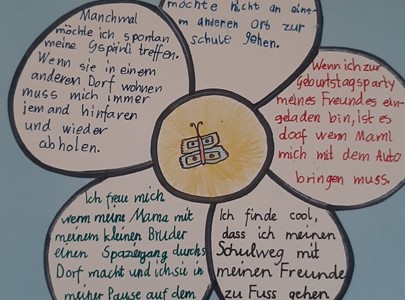 möchte nicht an eine-
m anderen Ort zur
schule gehen.
Manchmal
möchte ich spontan
meine Gspändli treffen.
Wenn sie in einem
anderen Dorf wohnen
muss mich immer
jemand hinfaren
und wieder
abholen.
Wenn ich zur
Geburtstagsparty
meines Freundes ein-
geladen bin, ist es
doof wenn Mami
mich mit dem Auto
bringen muss.
Ich freue mich
wenn meine Mama mit
meinem kleinen Bruder
einen Spaziergang durchs
Dorf macht und ich sie in
meiner Pause auf dem
Ich finde cool,
dass ich meinen
Schulweg mit
meinen Freunde
zu Fuss gehen